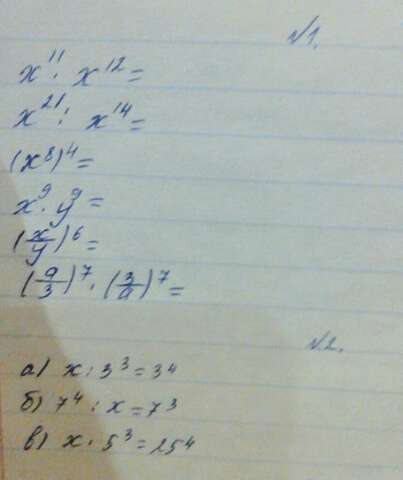 №1.
x¹¹ · x¹² =
x²¹ : x¹⁴ =
(x⁸)⁴ =
x⁹ · y⁹ =
(x/y)⁶ =
(a/3)⁷ · (3/a)⁷ =
№2.
а) x : 3³ = 3⁴
б) 7⁴ : x = 7³
в) x : 5³ = 25⁴